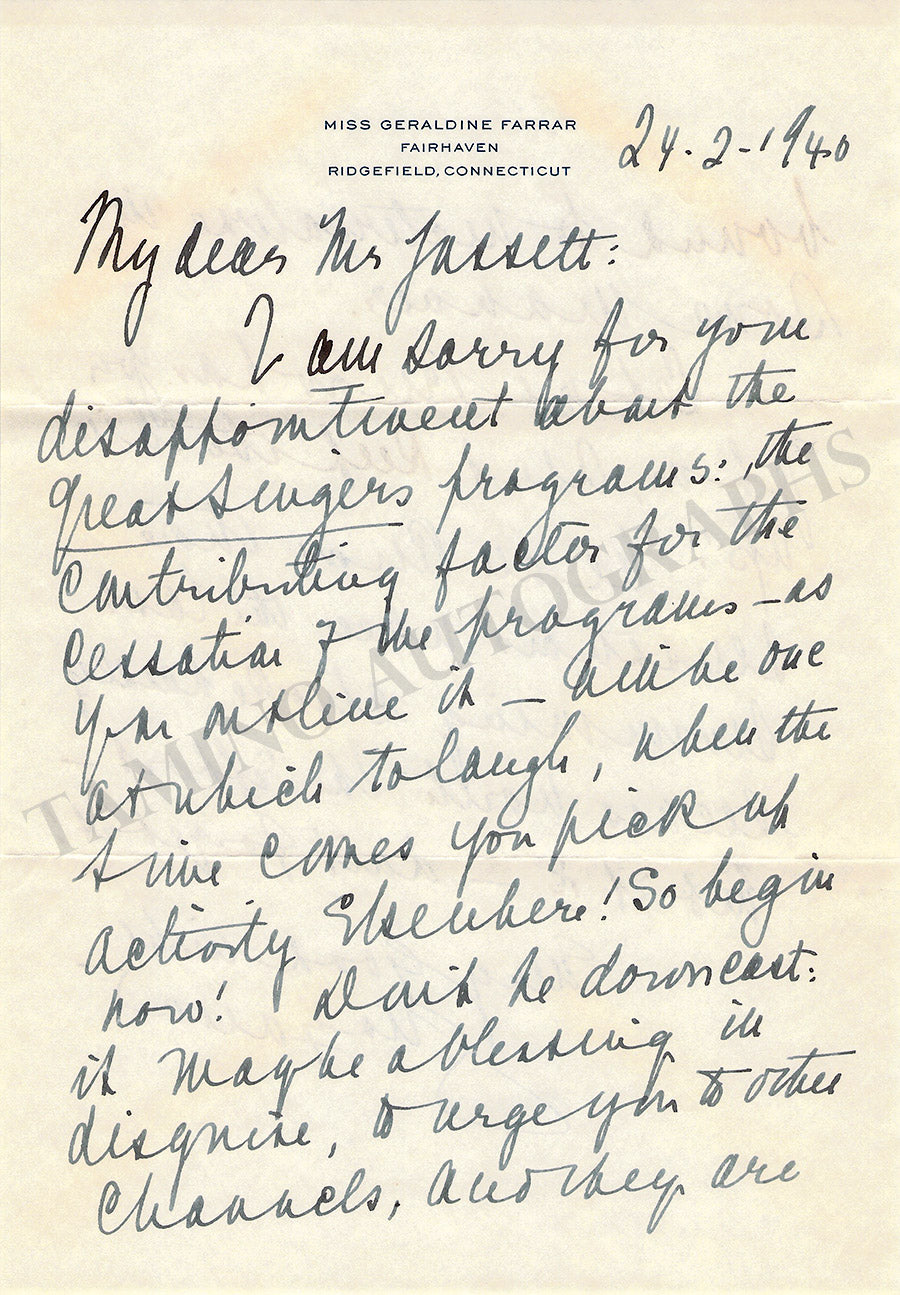 MISS GERALDINE FARRAR
FAIRHAVEN
RIDGEFIELD, CONNECTICUT
24-2-1940
My dear Mr Jassett:
I am sorry for your
disappointment about the
Great Singers programs: , the
contributing factor for the
cessation of the programs – as
you outline it – will be one
at which to laugh, when the
time comes you pick up
activity Elsewhere! So begin
now! Don't be downcast:
it may be a blessing in
disguise, to urge you to other
channels, and they are
TAMINO AUTOGRAPHS